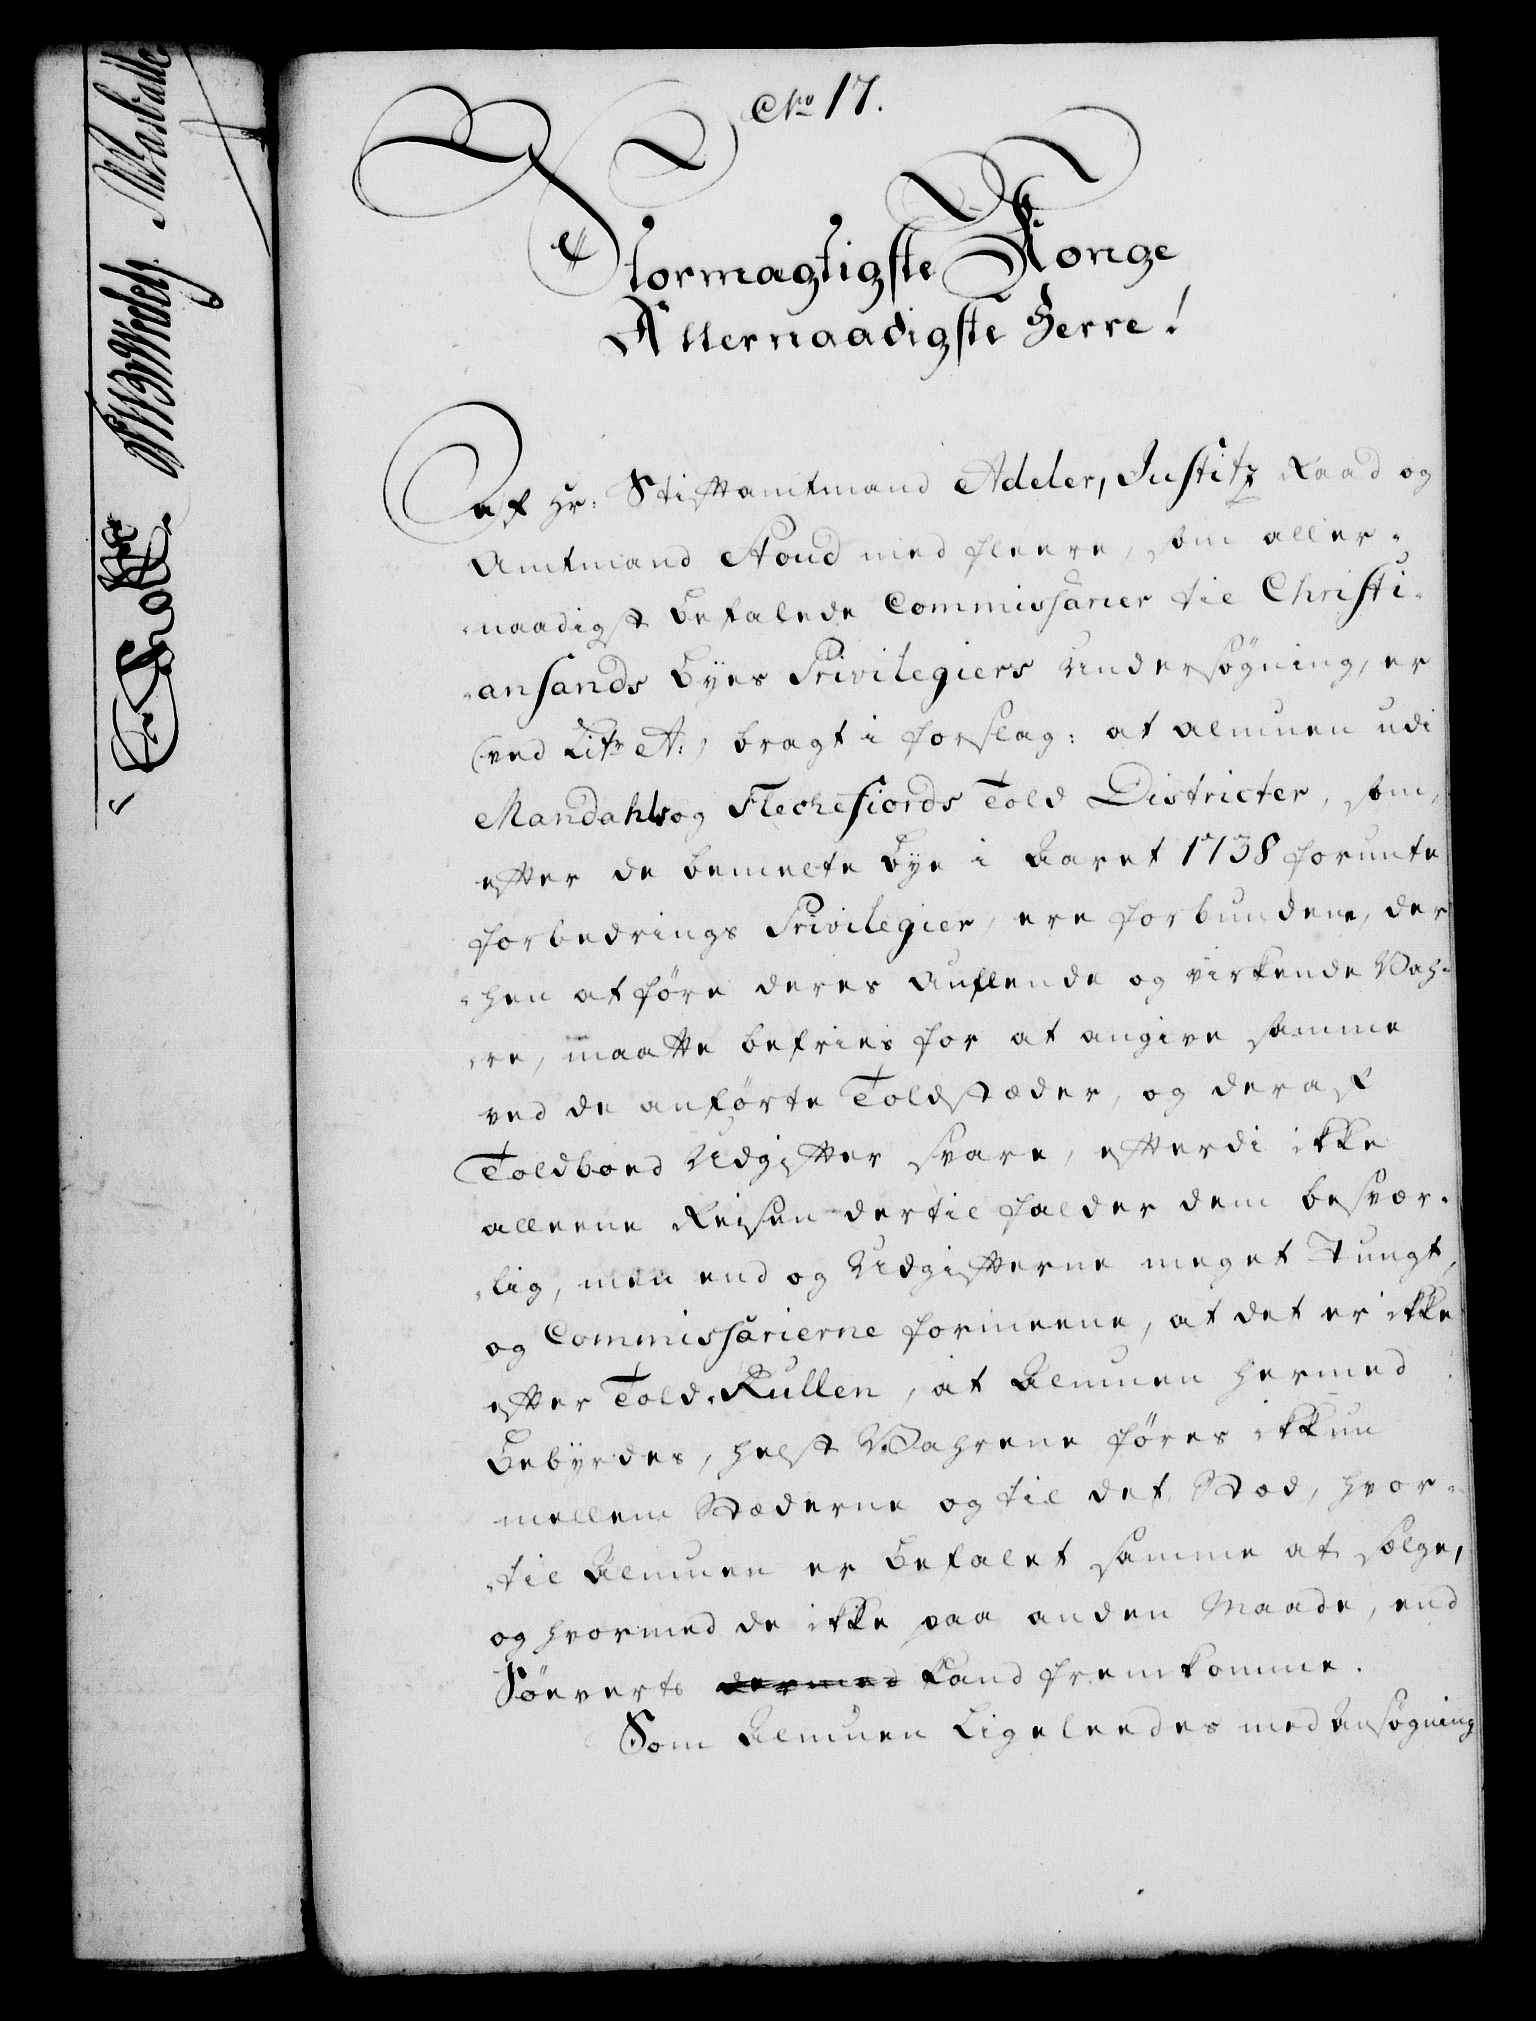 No 17.
Stormægtigste Konge
Allernaadigste Herre!
Af Hr. Stiftamtmand Adeler, Justitz Raad og
Amtmand Stoud med fleere, som aller-
-naadigst befalede Commissarier til Christi-
-ansands Byes Privilegiers Undersøgning, er
(: ved Litr A: ) bragt i forslag: at almuen udi
Mandahls og Flechefiords Told Districter, som,
efter de bemelte Bye i Aaret 1738 forunte
forbedrings Privilegier, ere forbundene, der
-hen at føre deres Auflende og virkende Vah-
-re, maatte befries for at angive samme
ved de anførte Toldstæder, og deraf
Toldboed Udgifter svare, efterdi ikke
alleene Reisen dertil falder dem besvær-
-lig, men end og Udgifterne meget Tungt,
og Commissarierne formeene, at det er ikke
efter Told-Rullen, at Almuen hermed
Bebyrdes, helst Vahrene føres ikkun
mellem Stæderne og til det Stod, hvor-
-til Almuen er Befalet samme at sælge,
og hvormed de ikke paa anden Maade, end
Söeverts dermed kand fremkomme.
Som Almuen Ligeleedes med Ansøgning